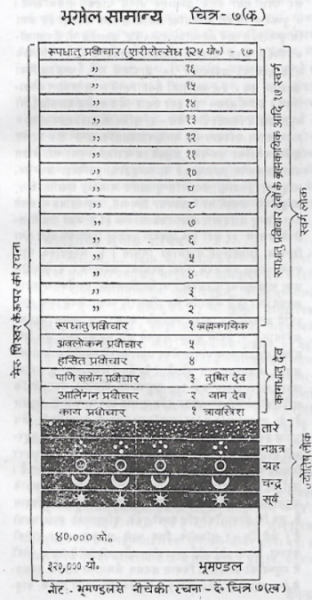 भूगोल सामान्य चित्र - ७(क)
रूपधातु प्रवीचार (शरीरोत्सेध १२५ यो०) - १७
,, १६
,, १५
,, १४
,, १३
,, १२
,, ११
,, १०
,, ९
,, ८
,, ७
,, ६
,, ५
,, ४
,, ३
,, २
रूपधातु प्रवीचार १ ब्रह्मकायिक
अवलोकन प्रवीचार ५
हसित प्रवीचार ४
पाणि संयोग प्रवीचार ३ तुषित देव
आलिंगन प्रवीचार २ याम देव
काय प्रवीचार १ त्रायस्त्रिंश
तारे
नक्षत्र
ग्रह
चन्द्र
सूर्य
४०,००० यो०
भूमण्डल
नोट - भूमण्डलसे नीचेकी रचना - दे. चित्र ७(ख)
मेरु शिखर के ऊपर की रचना
रूपधातु प्रवीचार देवों के ब्रह्मकायिक आदि १७ स्वर्ग
कामधातु देव
स्वर्ग लोक
ज्योतिष लोक